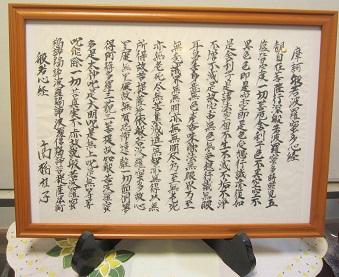 摩訶般若波羅蜜多心経
観自在菩薩行深般若波羅蜜多時照見五
蘊皆空度一切苦厄舎利子色不異空空不
異色色即是空空即是色受想行識亦復如
是舎利子是諸法空相不生不滅不垢不浄
不増不減是故空中無色無受想行識無眼
耳鼻舌身意無色声香味触法無眼界乃至
無意識界無無明亦無無明尽乃至無老死
亦無老死尽無苦集滅道無智亦無得以無
所得故菩提薩埵依般若波羅蜜多故心無
罣礙無罣礙故無有恐怖遠離一切顛倒夢
想究竟涅槃三世諸仏依般若波羅蜜多故
得阿耨多羅三藐三菩提故知般若波羅蜜
多是大神呪是大明呪是無上呪是無等等
呪能除一切苦真実不虚故説般若波羅蜜多呪即説呪曰
羯諦羯諦波羅羯諦波羅僧羯諦菩提薩婆訶
般若心経